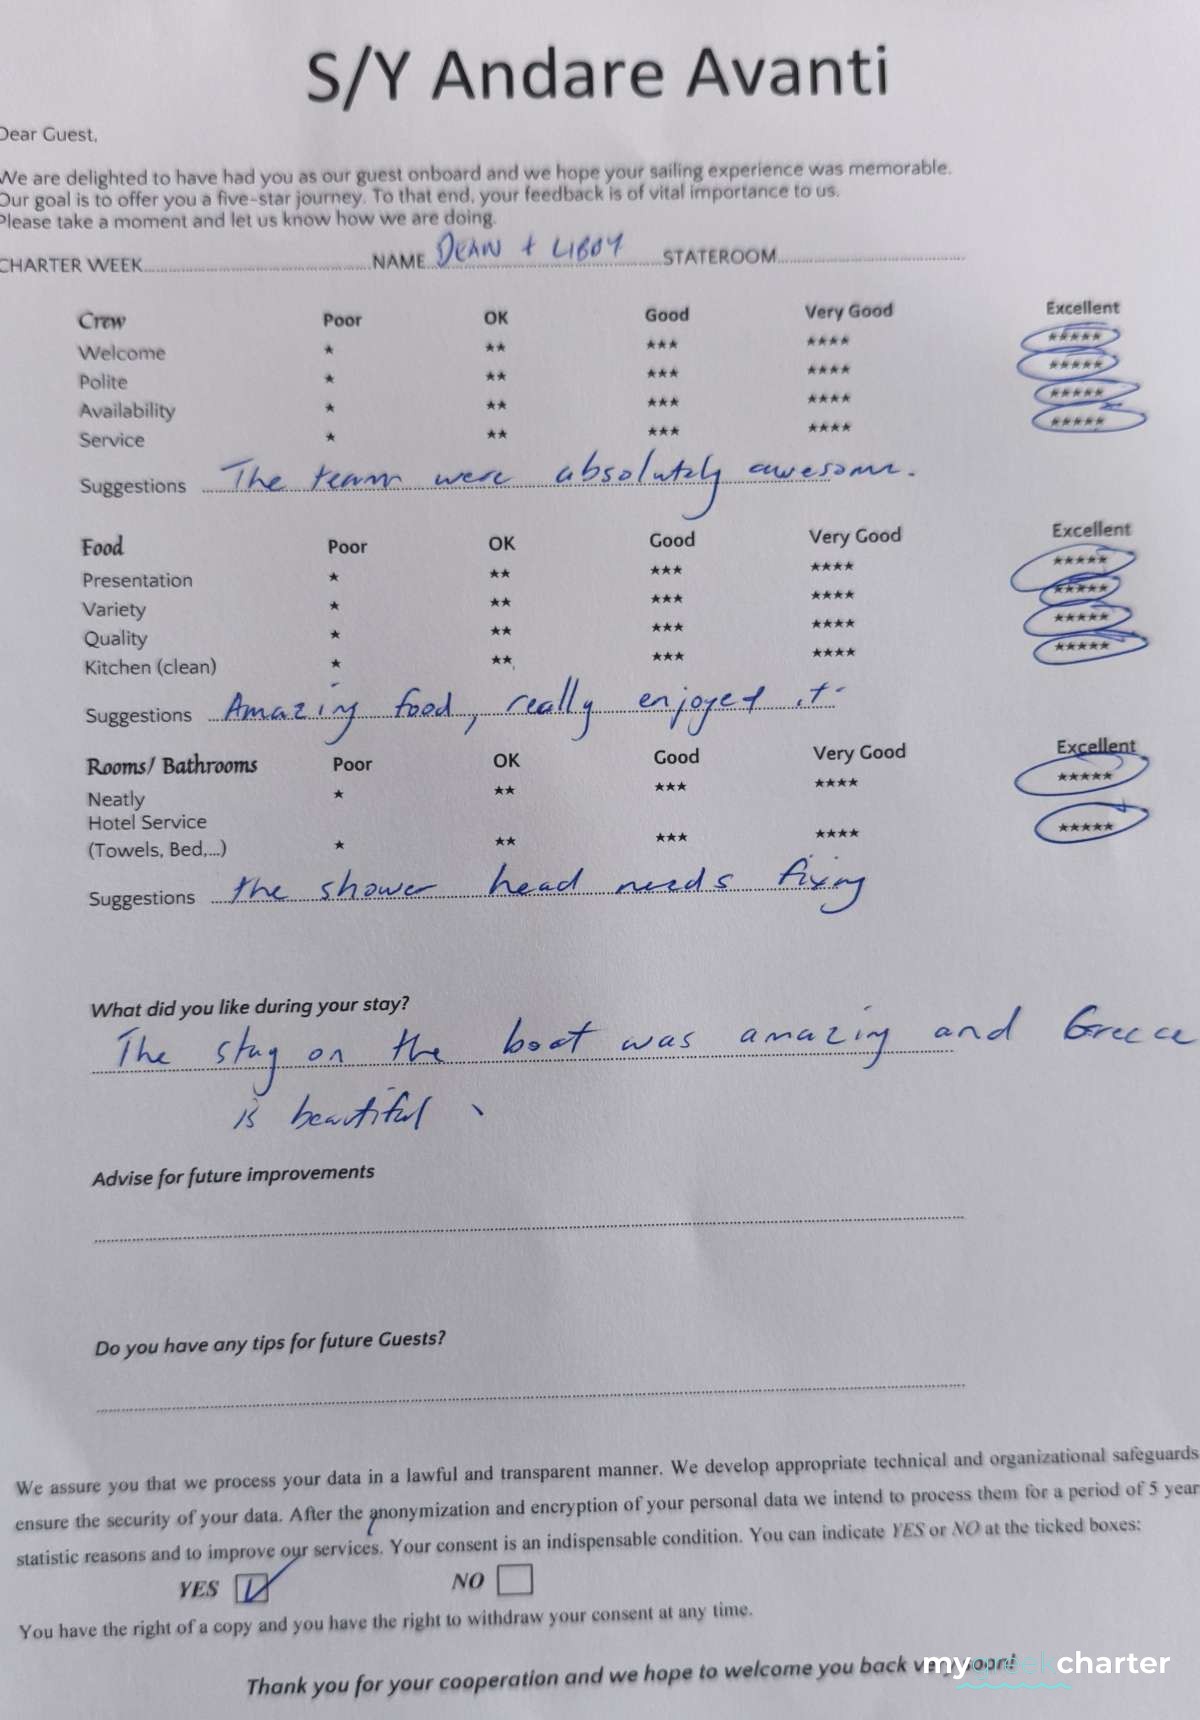 S/Y Andare Avanti
Dear Guest,
We are delighted to have had you as our guest onboard and we hope your sailing experience was memorable.
Our goal is to offer you a five-star journey. To that end, your feedback is of vital importance to us.
Please take a moment and let us know how we are doing.
CHARTER WEEK NAME DEAN + LIBBY STATEROOM
Crew Poor OK Good Very Good Excellent
Welcome ★ ★★ ★★★ ★★★★ ★★★★★
Polite ★ ★★ ★★★ ★★★★ ★★★★★
Availability ★ ★★ ★★★ ★★★★ ★★★★★
Service ★ ★★ ★★★ ★★★★ ★★★★★
Suggestions The team were absolutely awesome.
Food Poor OK Good Very Good Excellent
Presentation ★ ★★ ★★★ ★★★★ ★★★★★
Variety ★ ★★ ★★★ ★★★★ ★★★★★
Quality ★ ★★ ★★★ ★★★★ ★★★★★
Kitchen (clean) ★ ★★ ★★★ ★★★★ ★★★★★
Suggestions Amazing food, really enjoyed it
Rooms/ Bathrooms Poor OK Good Very Good Excellent
Neatly ★ ★★ ★★★ ★★★★ ★★★★★
Hotel Service
(Towels, Bed,...) ★ ★★ ★★★ ★★★★ ★★★★★
Suggestions the shower head needs fixing
What did you like during your stay?
The stay on the boat was amazing and Greece
is beautiful
Advise for future improvements
Do you have any tips for future Guests?
We assure you that we process your data in a lawful and transparent manner. We develop appropriate technical and organizational safeguards
ensure the security of your data. After the anonymization and encryption of your personal data we intend to process them for a period of 5 year
statistic reasons and to improve our services. Your consent is an indispensable condition. You can indicate YES or NO at the ticked boxes:
YES NO
You have the right of a copy and you have the right to withdraw your consent at any time.
Thank you for your cooperation and we hope to welcome you back very soon!
mygreekcharter